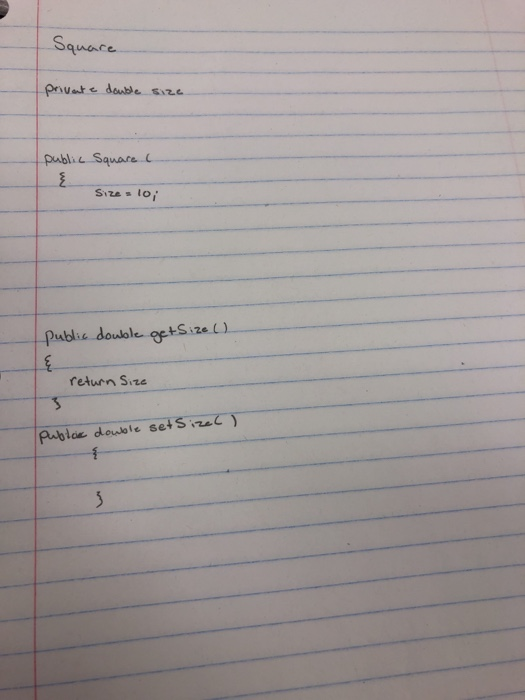 Square
private double size
public Square (
{
Size = 10;
public double getSize()
{
return Size
}
public double setSize( )
{
}